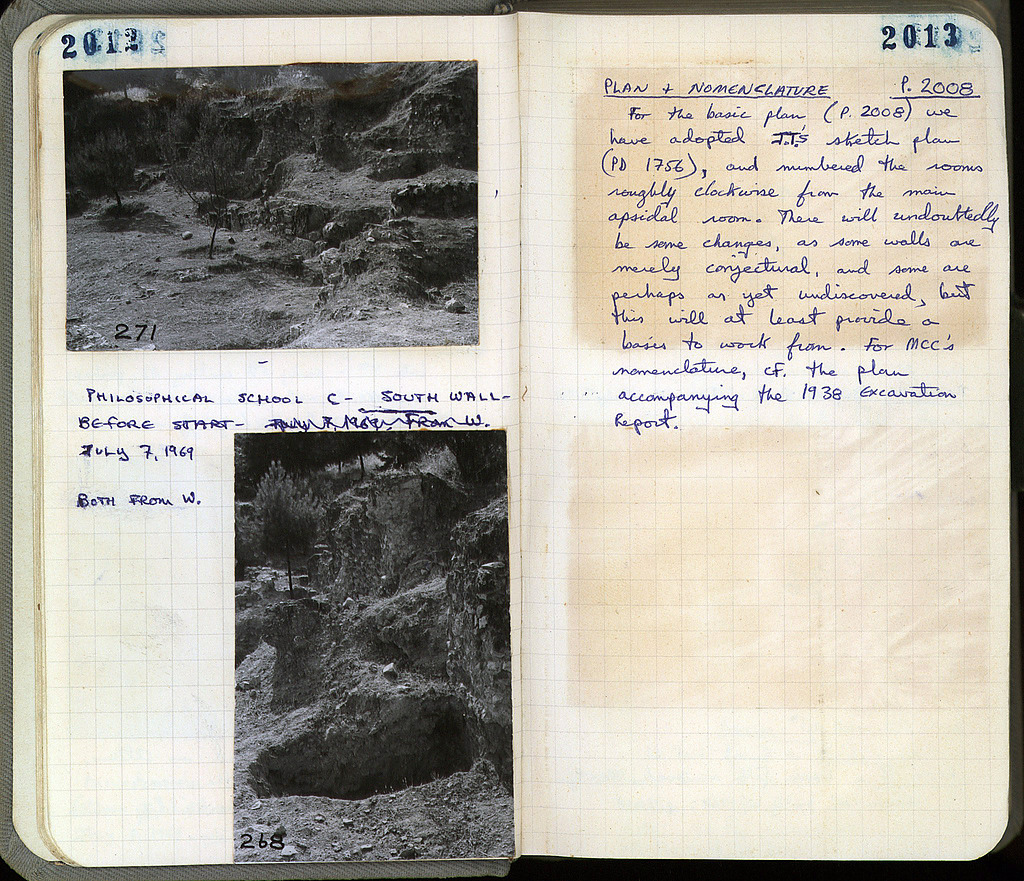 2012
271
PHILOSOPHICAL SCHOOL C - SOUTH WALL -
BEFORE START - JULY 7, 1969, FROM W.
JULY 7, 1969
BOTH FROM W.
268
2013
PLAN + NOMENCLATURE P. 2008
For the basic plan (P. 2008) we
have adopted J.T.'s sketch plan
(PD 1756), and numbered the rooms
roughly clockwise from the main
apsidal room. There will undoubtedly
be some changes, as some walls are
merely conjectural, and some are
perhaps as yet undiscovered, but
this will at least provide a
basis to work from. For MCC's
nomenclature, cf. the plan
accompanying the 1938 Excavation
Report.